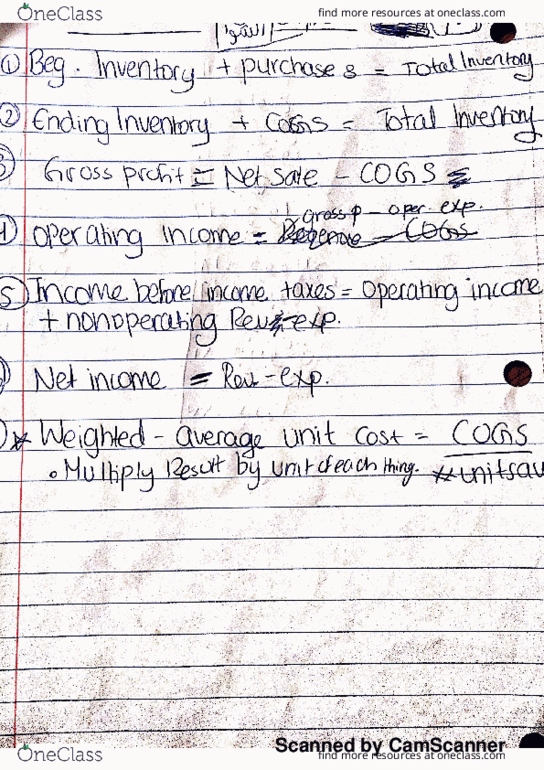 OneClass
find more resources at oneclass.com
① Beg. Inventory + purchases = Total Inventory
② Ending Inventory + COGS = Total Inventory
Gross profit = Net sale - COGS
gross p - oper. exp.
operating income = Revenue - COGS
Income before income taxes = operating income
+ nonoperating Rev exp.
Net income = Rev - exp.
* Weighted - average unit cost = COGS
• Multiply Result by unit of each thing. # unitsav
Scanned by CamScanner
OneClass
find more resources at oneclass.com